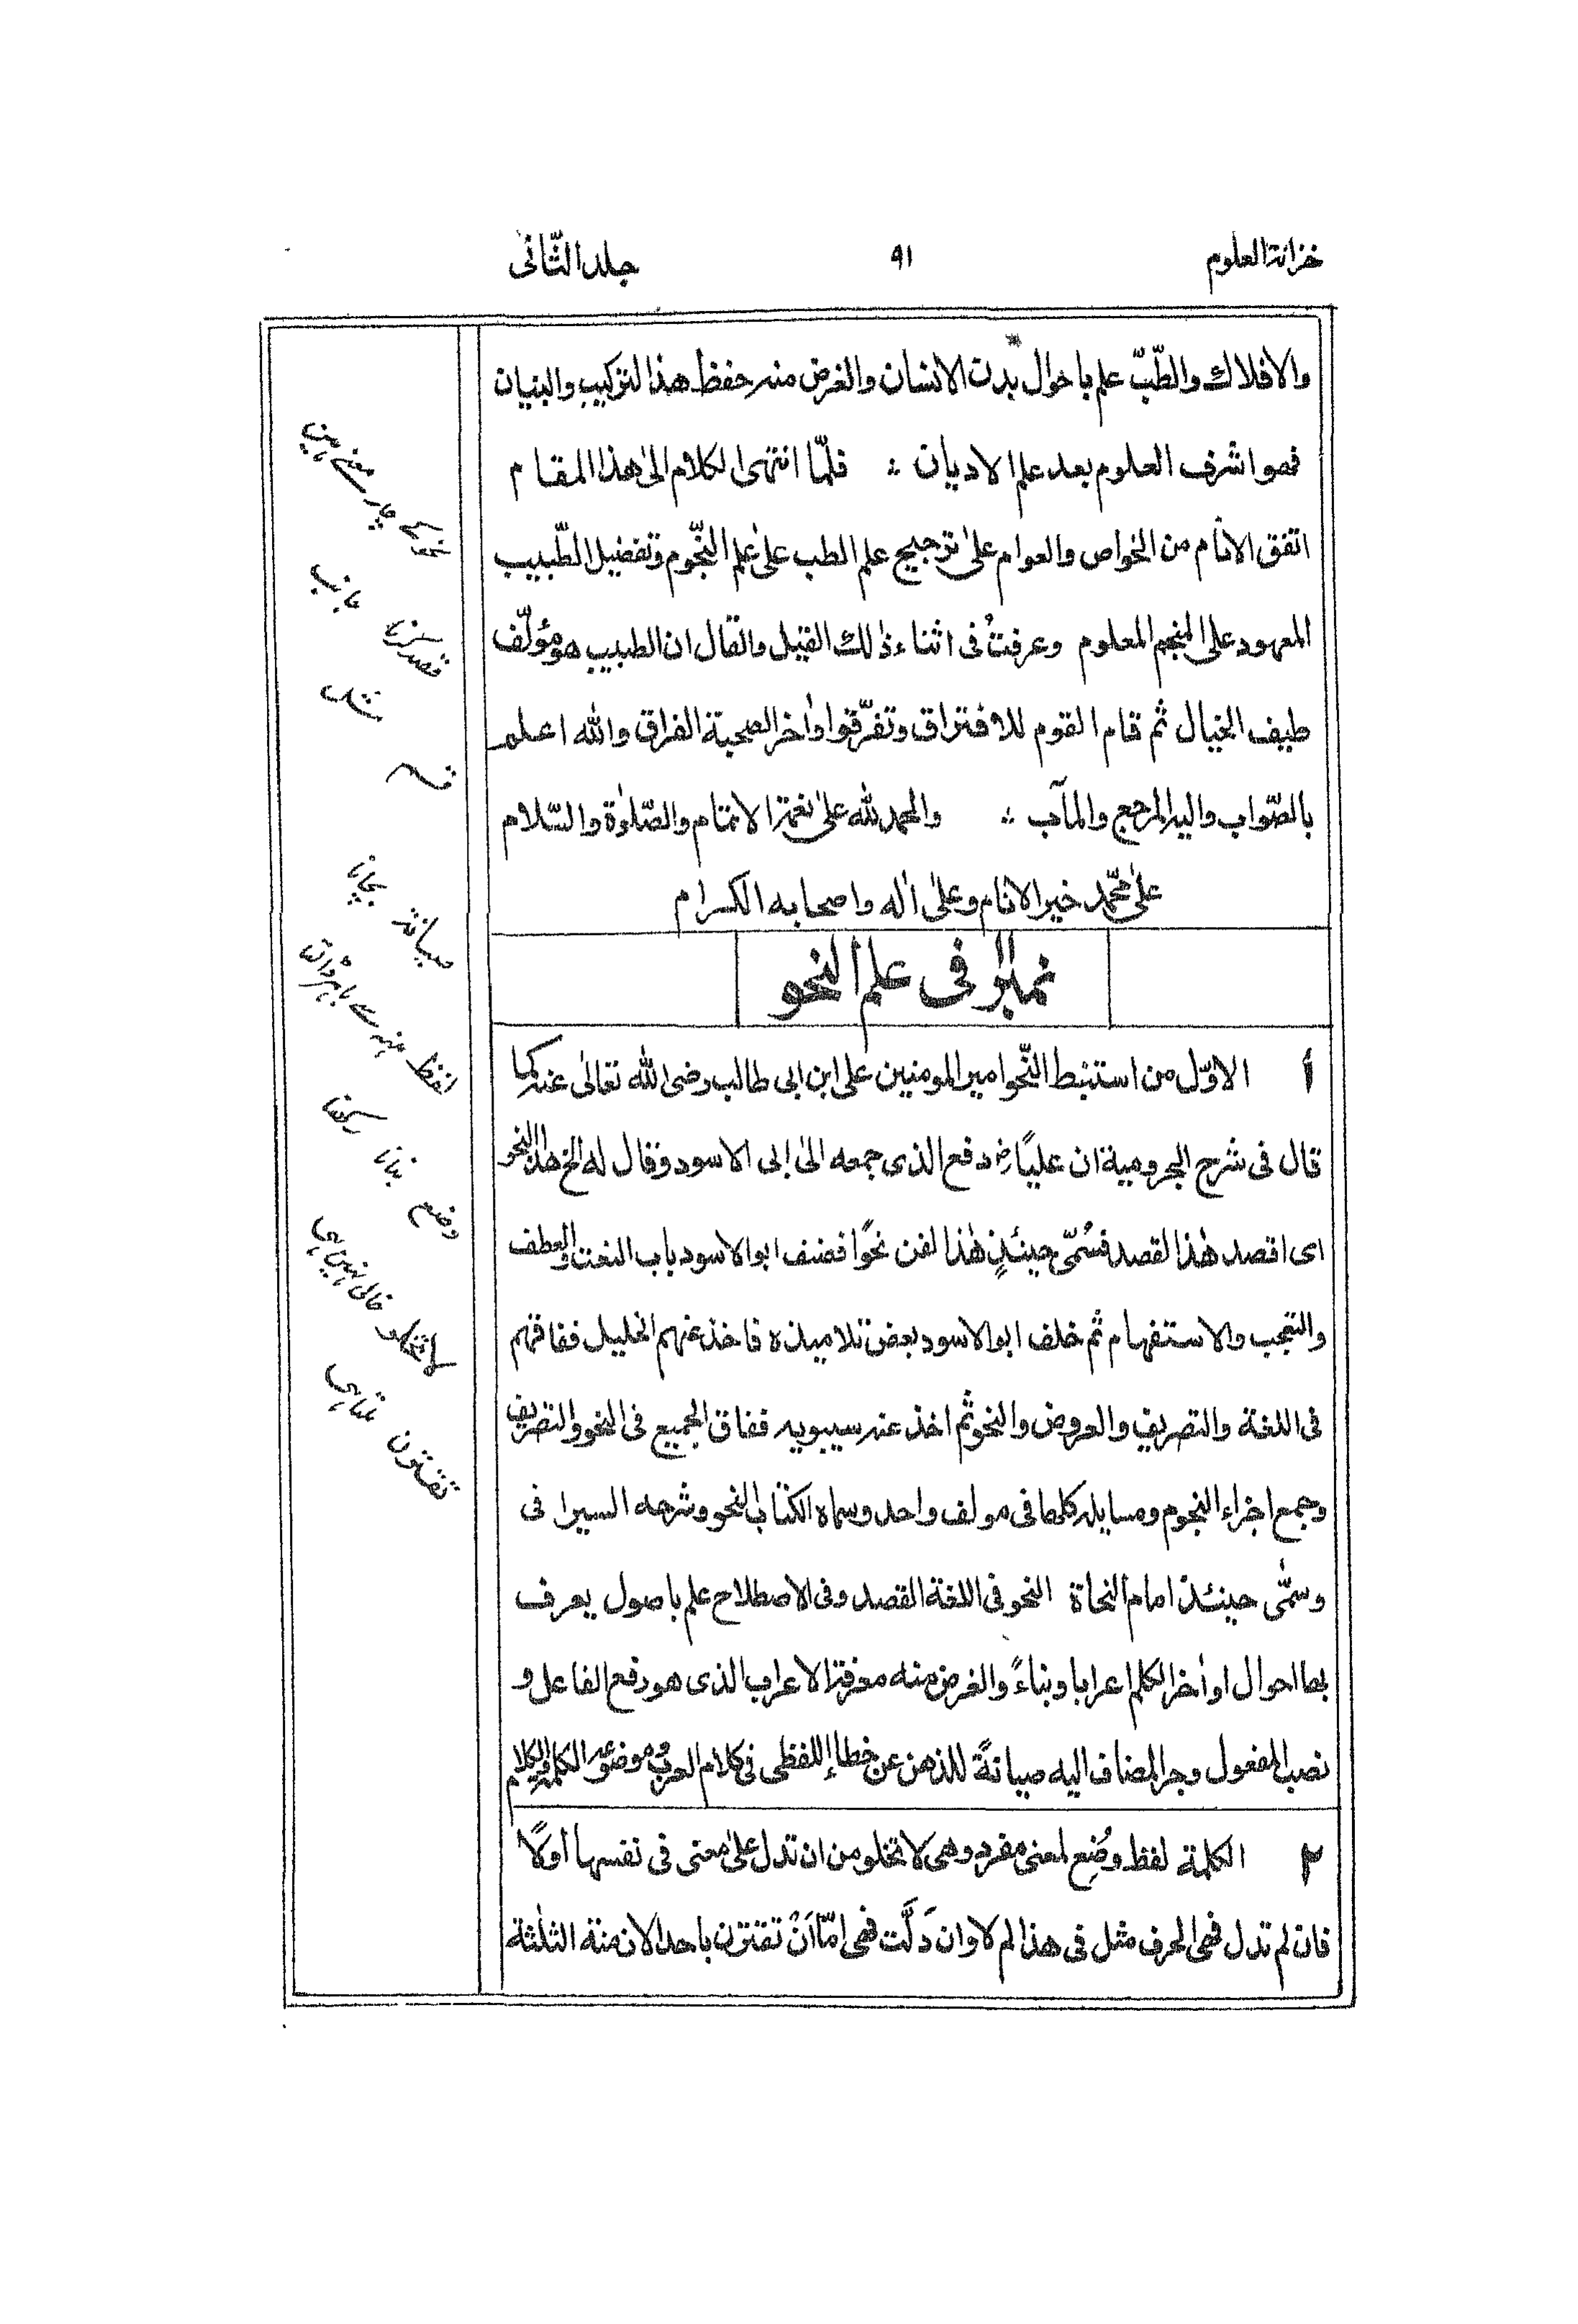 خزانة العلوم
٩١
جلد الثّانى
والافلاك والطّبّ علم باحوال بدن الانسان والغرض منه حفظ هذا التركيب والبنيان
فهو اشرف العلوم بعد علم الاديان ؞ فلمّا انتهى الكلام الىٰ هذا المقام
اتفق الانام من الخواص والعوام علىٰ ترجيح علم الطب علىٰ علم النّجوم وتفضيل الطّبيب
المعهود على المنجم المعلوم وعرفتُ فى اثناء ذٰلك القيل والقال ان الطبيب هو مؤلّف
طيف الخيال ثم قام القوم للافتراق وتفرّقوا واٰخر الصحبة الفراق والله اعلم
بالصّواب واليه المرجع والمآب ؞ والحمد لله علىٰ نعمة الاتمام والصّلوٰة والسّلام
علىٰ محمّد خير الانام وعلىٰ اٰله واصحابه الكرام
فى علم النحو
١ الاوّل من استنبط النّحو امير المومنين على ابن ابى طالب رضى الله تعالىٰ عنه كما
قال فى شرح الجرومية ان عليّاً رض دفع الذى جمعه الىٰ ابى الاسود وقال له انح هذا النحو
اى اقصد هٰذا القصد فسُمّى حينئذٍ هٰذا لفن نحوًا فصنف ابو الاسود باب النعت والعطف
والتعجب والاستفهام ثم خلف ابو الاسود بعض تلاميذه فاخذ عنهم الخليل ففاقهم
فى اللغة والتصريف والعروض والنحو ثم اخذ عنه سيبويه ففاق الجميع فى النحو والتصريف
وجمع اجزاء النجوم ومسايله كلها فى مولف واحد وسماه الكتاب النحو وشرحه السيرا فى
وسمّى حينئذ امام النحاة النحو فى اللغة القصد وفى الاصطلاح علم باصول يعرف
بها احوال اواٰخر الكلم اعرابا وبناءً والغرض منه معرفة الاعراب الذى هو رفع الفاعل و
نصب المفعول وجر المضاف اليه صيانةً للذهن عن خطاإ اللفظى فى كلام العرب وموضوعه الكلمة والكلام
٢ الكلمة لفظ وُضِع لمعنى مفرد وهى لا تخلو من ان تدل علىٰ معنى فى نفسها اولًا
فان لم تدل فهى الحرف مثل فى هذا لم لا وان دَلَّت فهى امّا اَنْ تقترن باحد الازمنة الثلٰثة
نحو کے چار معنے ہین
قصد کرنا جانب
مثل
قسم
صيانة بچانا
لفظ منہ سے باہر ڈالنا
وضع بنانا رکھنا
تقترن ملتاہی